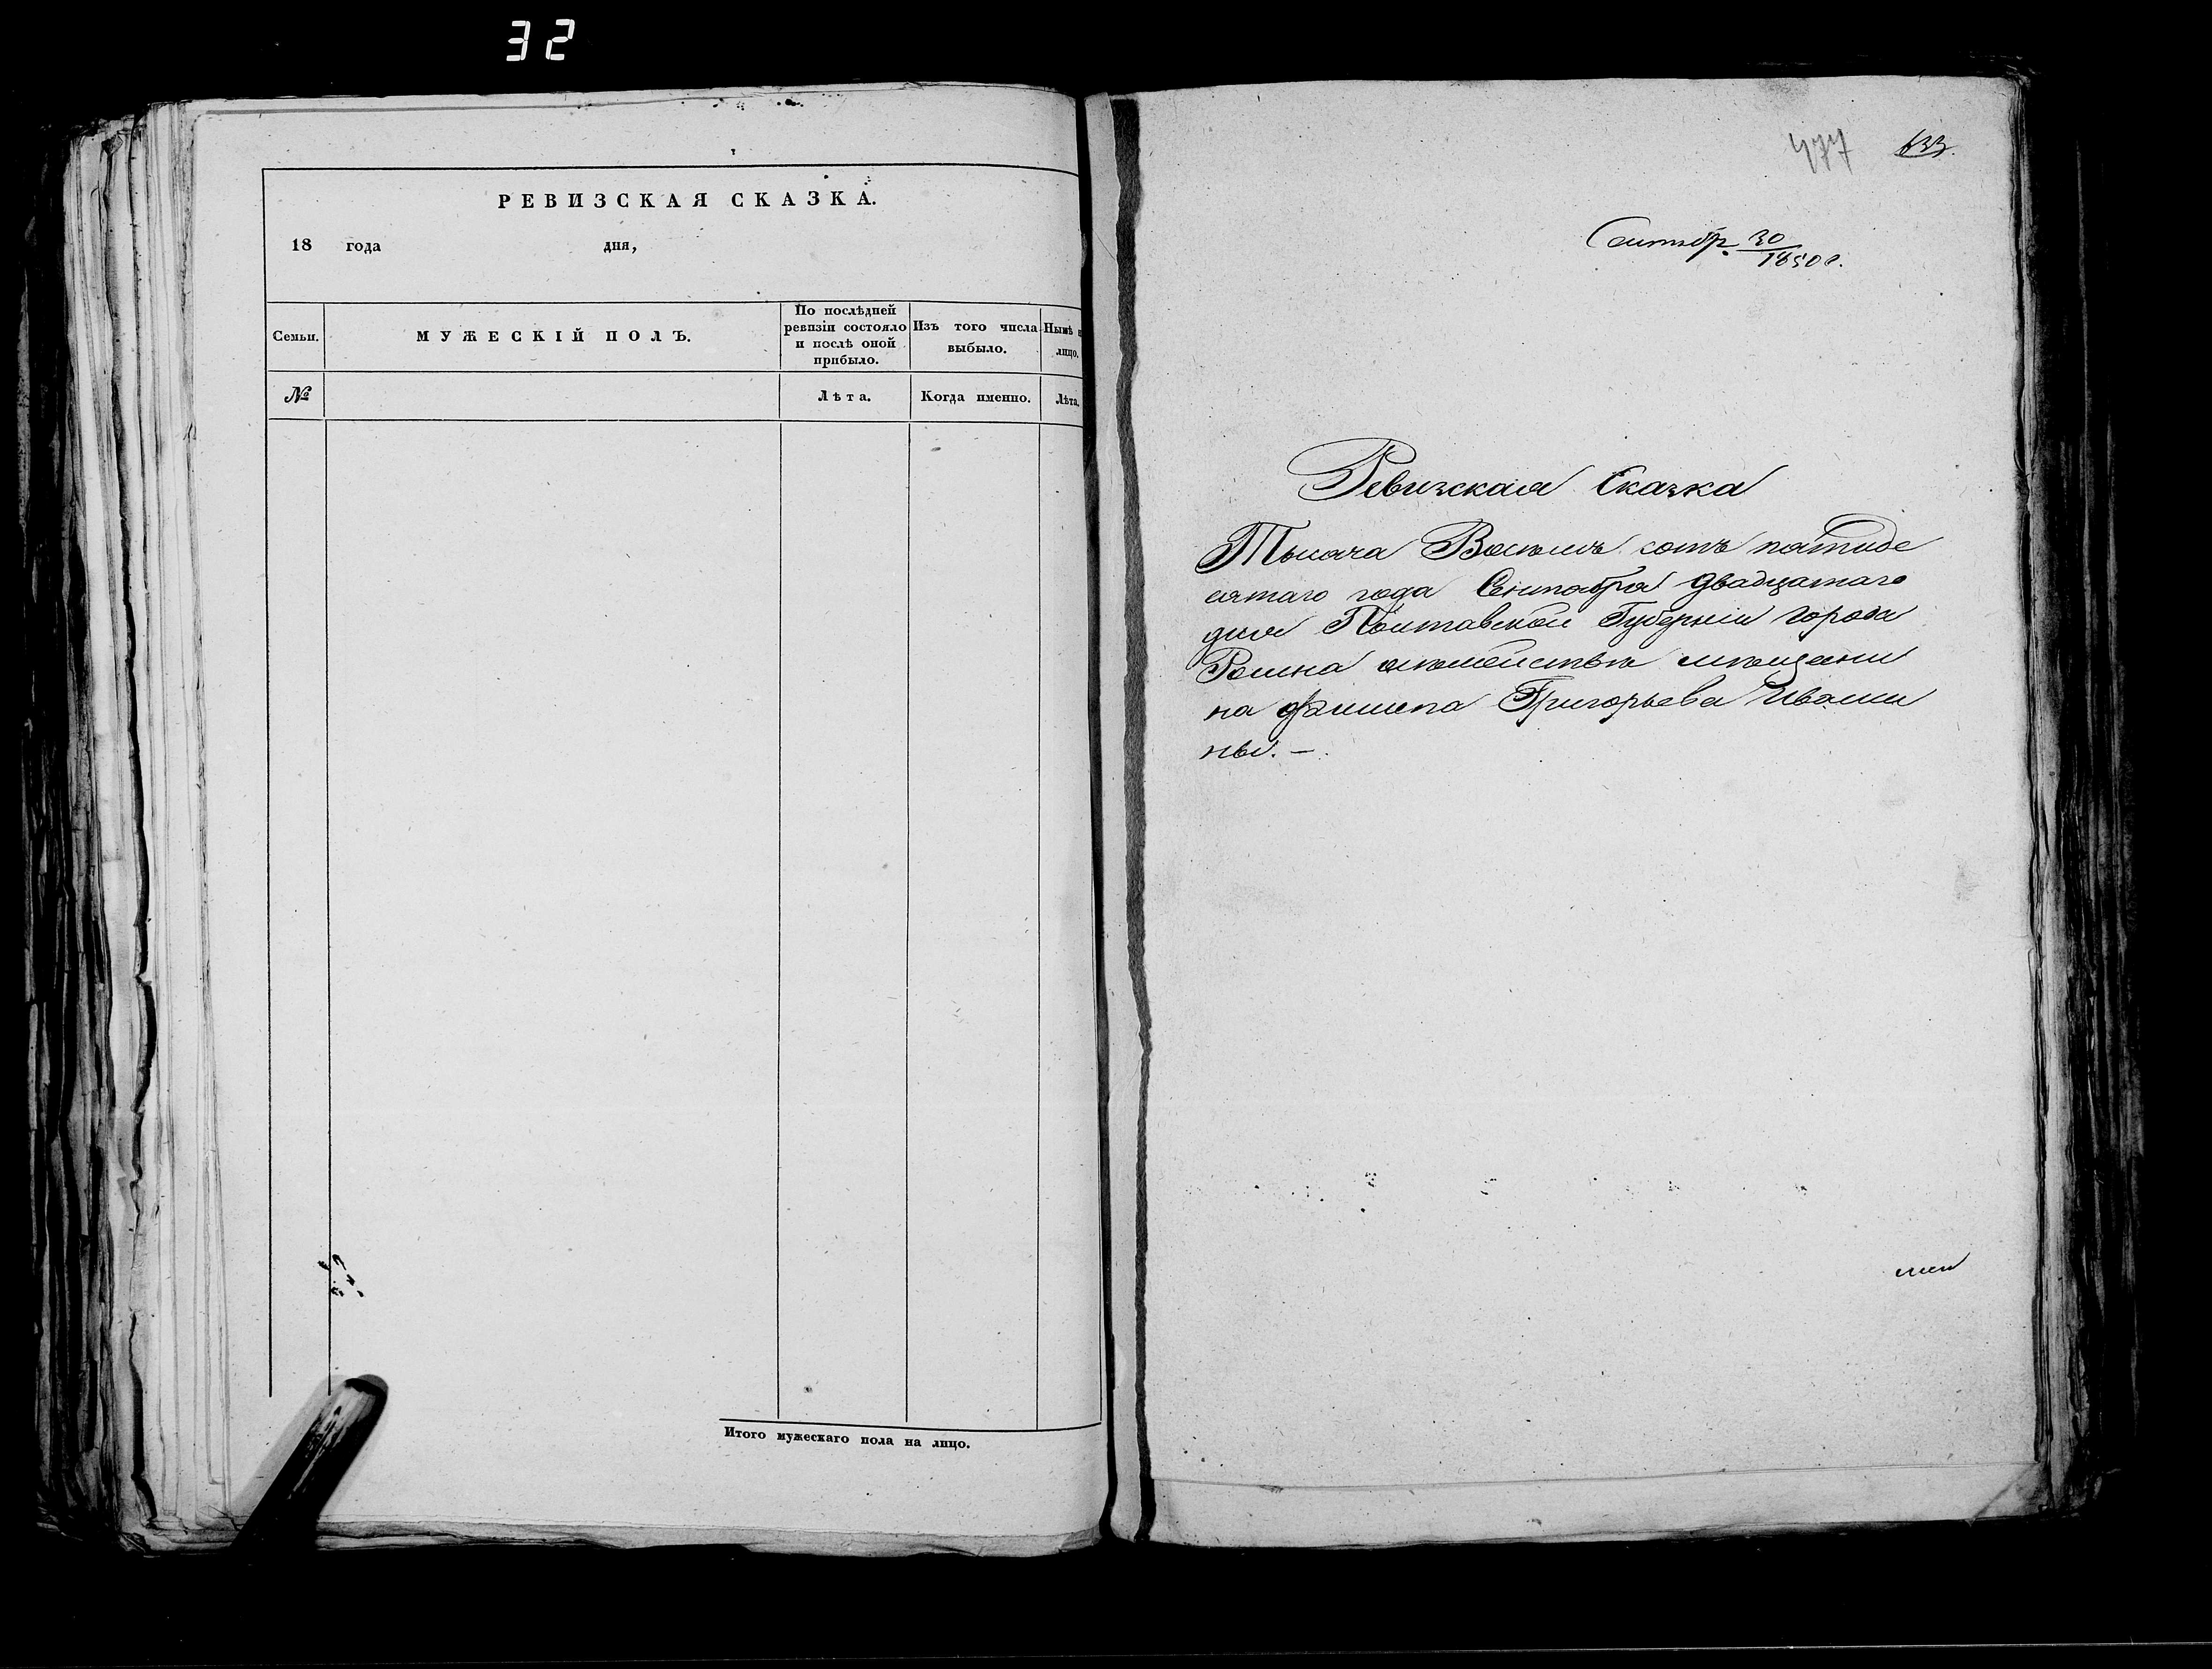 32
РЕВИЗСКАЯ СКАЗКА.
18 года дня,
Семьи.
МУЖЕСКІЙ ПОЛЪ.
По послѣдней
ревизіи состояло
и послѣ оной
прибыло.
Изъ того числа
выбыло.
Нынѣ н
лицо.
№
Лѣта.
Когда именно.
Лѣта.
Итого мужескаго пола на лицо.
477 633.
Сентябр. 30
1850 г.
Ревизская Сказка
Тысяча Восемь сотъ пятиде
сятаго года Сентября двадцатаго
дня Полтавской Губерніи города
Ромна мѣщани
на Филипа Григорьева Иваши
ны. —